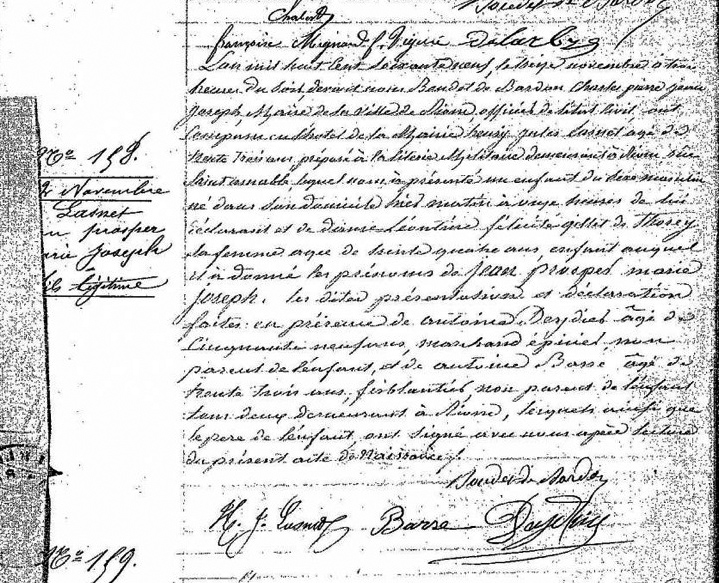 françoise Mignard f. Viguié Delarbre
L'an mil huit cent soixante neuf, le treize novembre a trois
heures du soir devant nous Boudet de Bardon Charles pierre
Joseph Maire de la Ville de Riom, officier de l'état civil ont
comparu en l'hotel de la Mairie henry jules Lasnet agé de
trente trois ans préposé à la literie Militaire demeurant à Riom rue
Saint amable lequel nous à présenté un enfant du sexe masculin
né dans son domicile hier matin à onze heures de lui
déclarant et de dame Léontine félicité de Thorey
sa femme agée de trente quatre ans, enfant auquel
il à donné les prénoms de Jean prosper marie
Joseph. les dites présentation et déclaration
faites en présence de antoine Desdied âgé de
Cinquante neuf ans, marchand épicier, non
parent de l'enfant, et de antoine Barse âgé de
trente trois ans ferblantier non parent de l'enfant
tous deux demeurant à Riom, lesquels ainsi que
le père de l'enfant ont signé avec nous après lecture
du présent acte de naissance.
Boudet de Bardon
H. J. Lasnet Barse
No 158.
Novembre
Lasnet
prosper
Joseph
légitime
No 159.